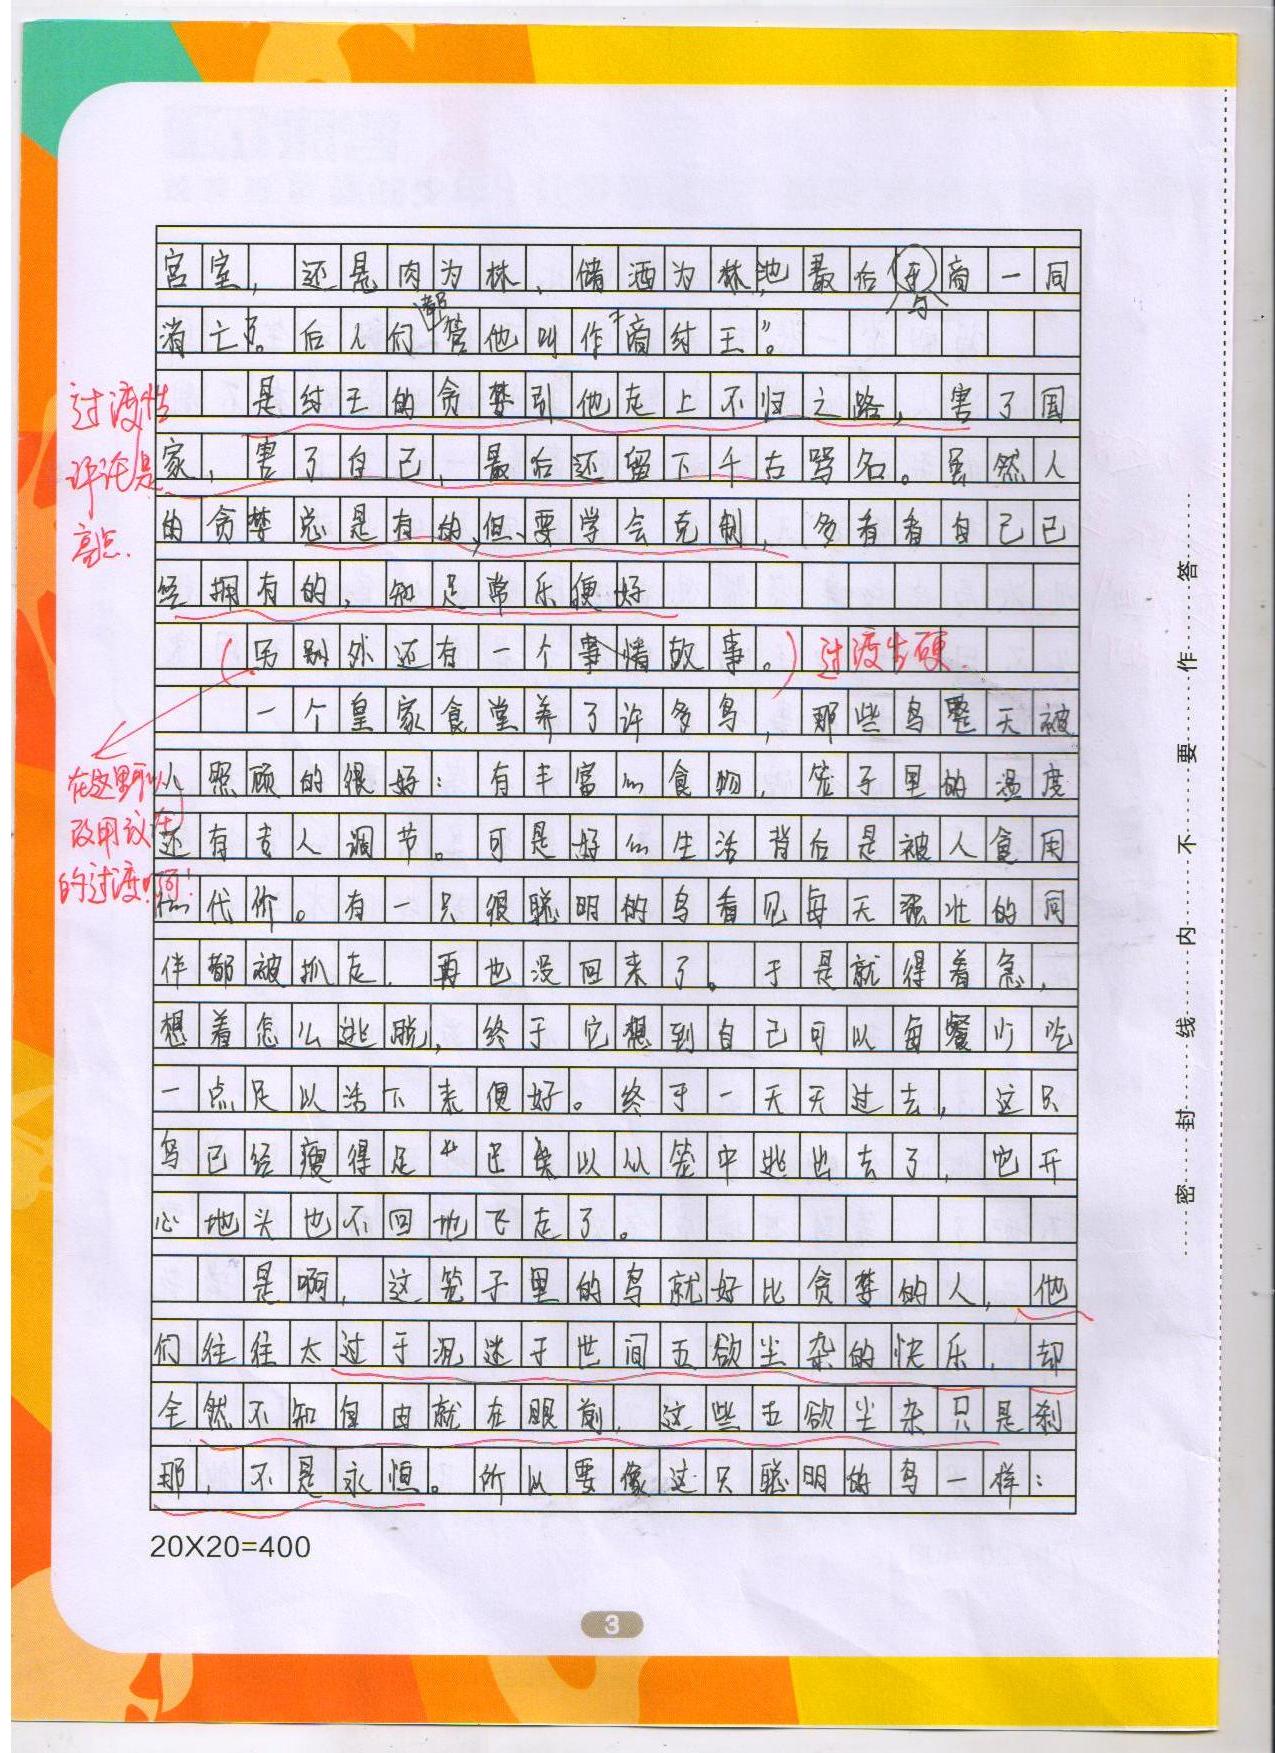 宫室,还是肉为林、储酒为林池最后与商一同
消亡了。后人们都管他叫作“商纣王”。
是纣王的贪婪引他走上不归之路,害了国
家,害了自己,最后还留下千古骂名。虽然人
的贪婪总是有的,但要学会克制,多看看自己已
经拥有的,知足常乐便好
另别外还有一个事情故事。
过渡生硬.
一个皇家食堂养了许多鸟,那些鸟整天被
人照顾的很好:有丰富的食物,笼子里的温度
还有专人调节。可是好的生活背后是被人食用
的代价。有一只很聪明的鸟看见每天强壮的同
伴都被抓走,再也没回来了。于是就得着急,
想着怎么逃脱,终于它想到自己可以每餐少吃
一点足以活下来便好。终于一天天过去,这只
鸟已经瘦得足以从笼中逃出去了,它开
心地头也不回地飞走了。
是啊,这笼子里的鸟就好比贪婪的人,他
们往往太过于沉迷于世间五欲尘杂的快乐,却
全然不知自由就在眼前,这些五欲尘杂只是刹
那,不是永恒。所以要像这只聪明的鸟一样:
20X20=400
3
过渡性
评论是
亮点.
在这里可以
改用设问
的过渡啊!
密封线内不要作答